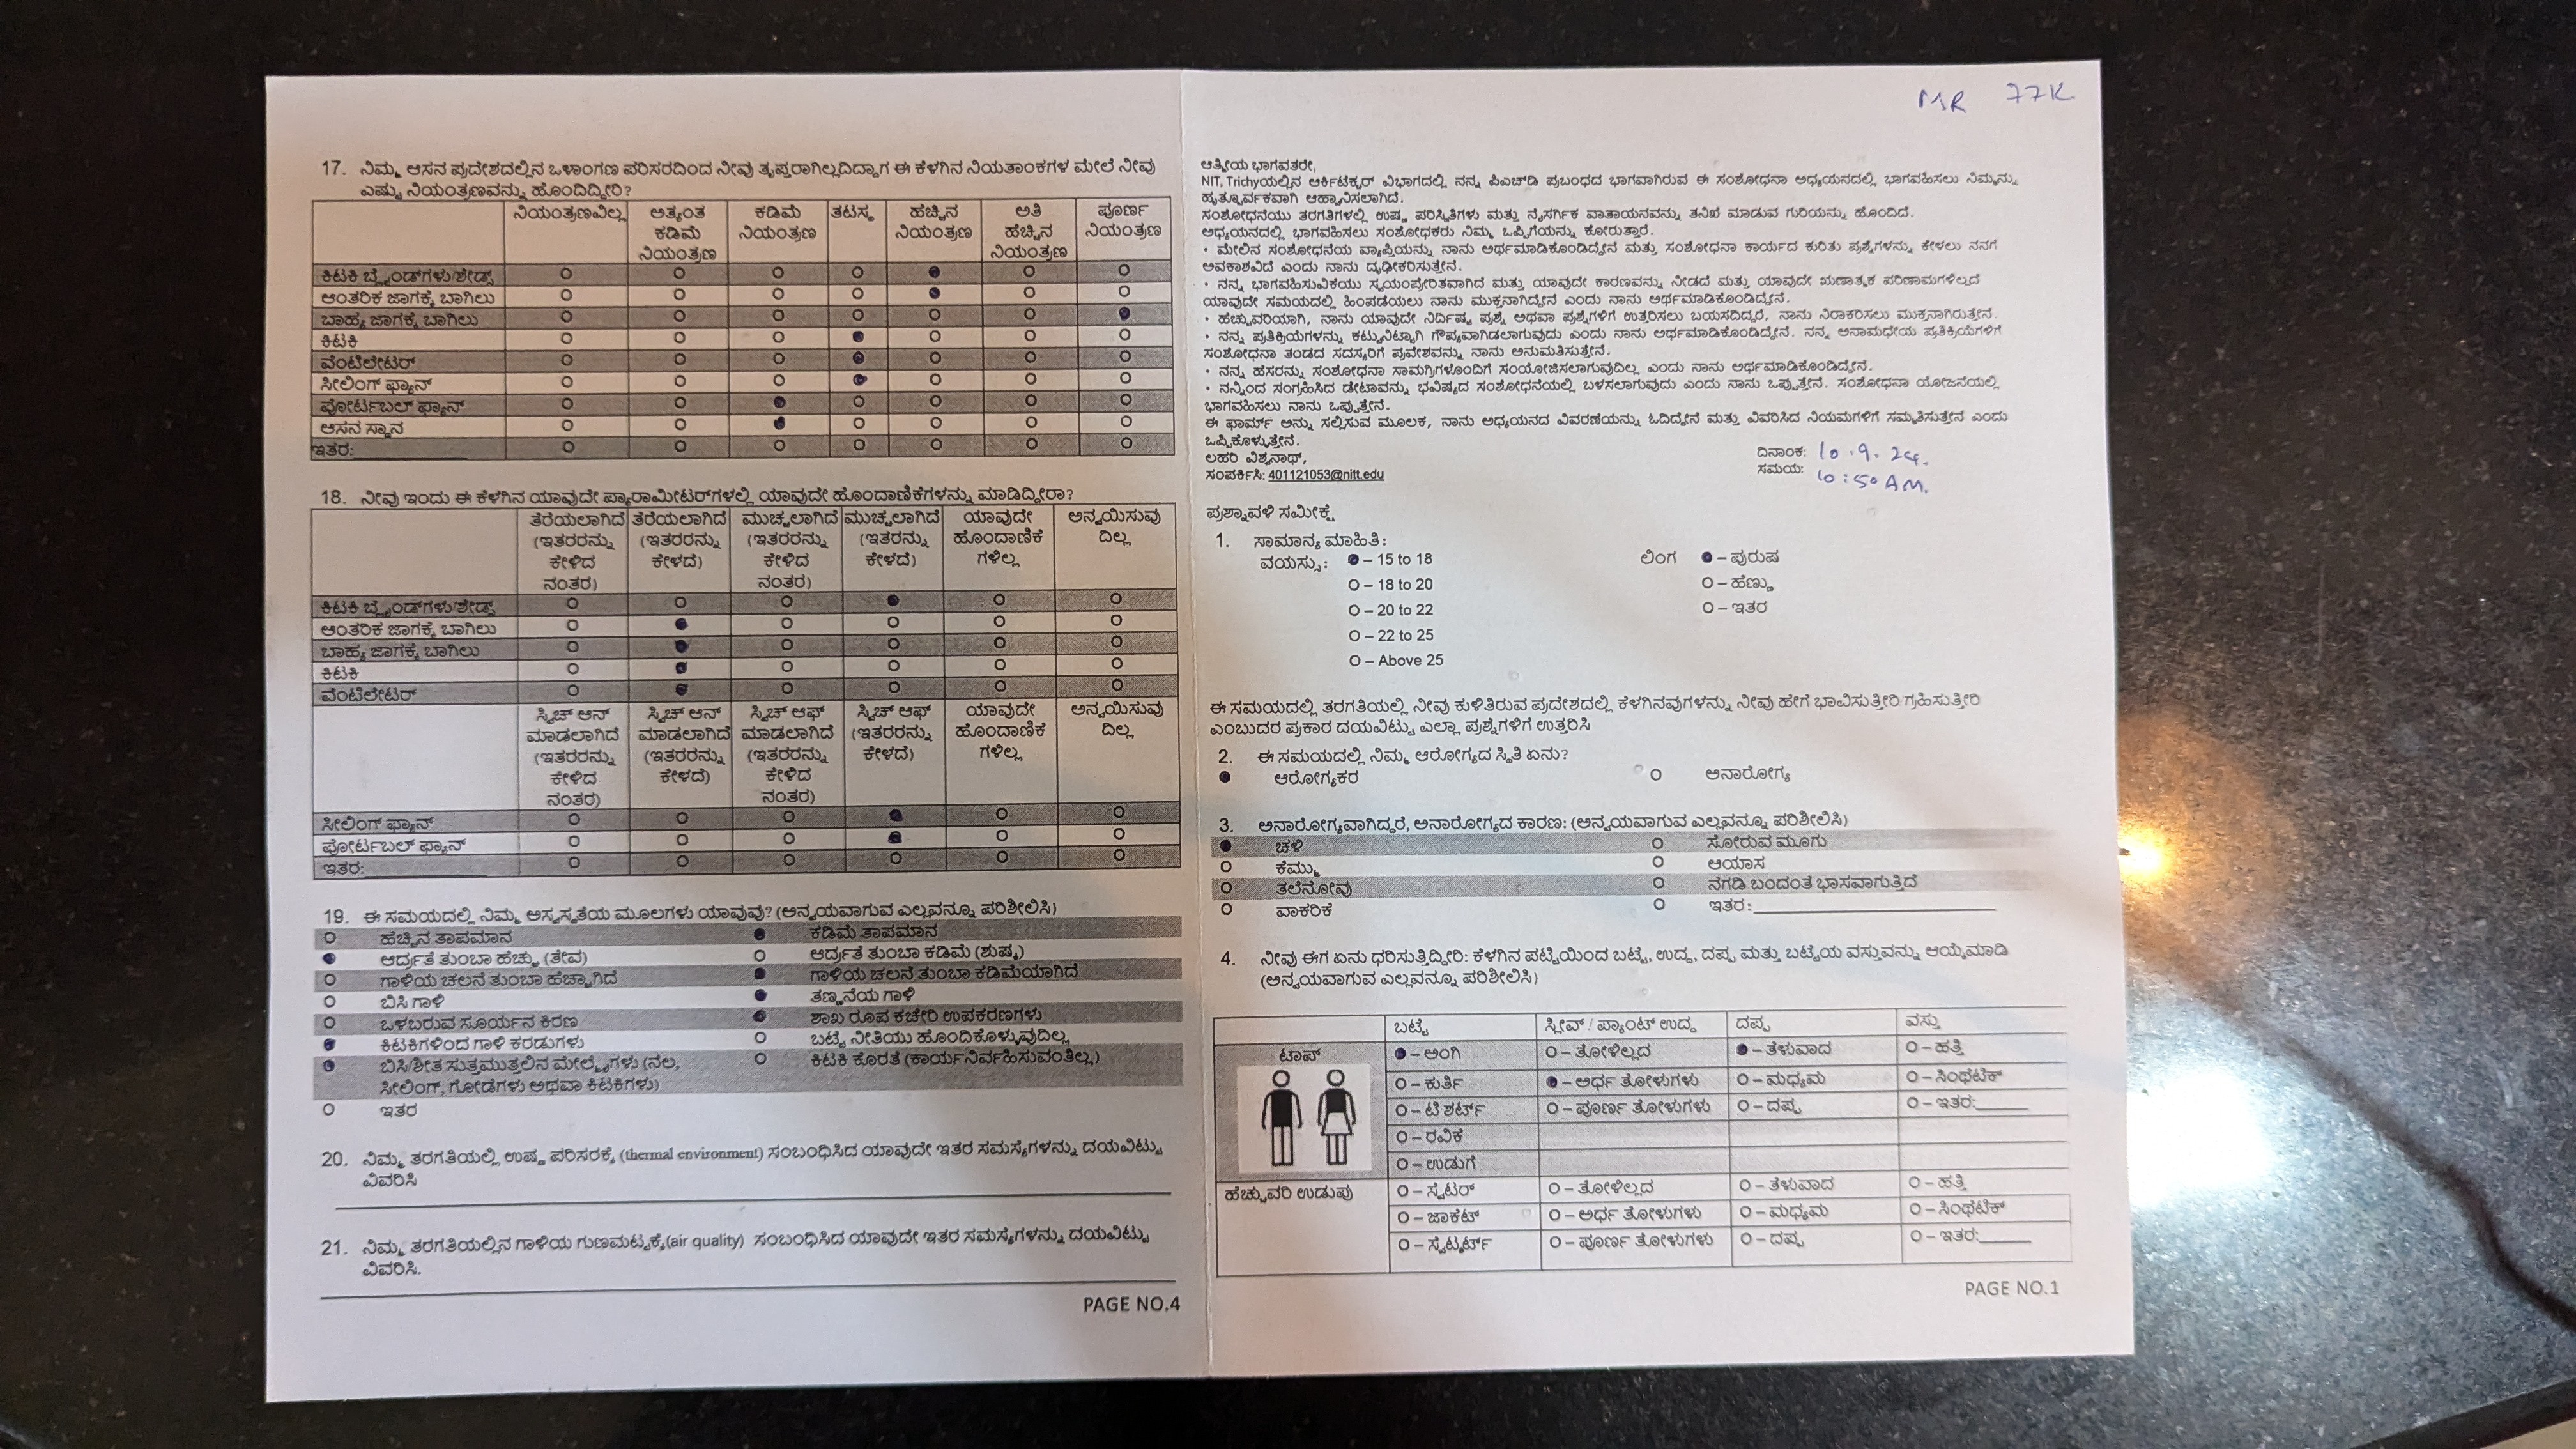 17. ನಿಮ್ಮ ಆಸನ ಪ್ರದೇಶದಲ್ಲಿನ ಒಳಾಂಗಣ ಪರಿಸರದಿಂದ ನೀವು ತೃಪ್ತರಾಗಿಲ್ಲದಿದ್ದಾಗ ಈ ಕೆಳಗಿನ ನಿಯತಾಂಕಗಳ ಮೇಲೆ ನೀವು
ಎಷ್ಟು ನಿಯಂತ್ರಣವನ್ನು ಹೊಂದಿದ್ದೀರಿ?
ನಿಯಂತ್ರಣವಿಲ್ಲ ಅತ್ಯಂತ ಕಡಿಮೆ ನಿಯಂತ್ರಣ ಕಡಿಮೆ ನಿಯಂತ್ರಣ ತಟಸ್ಥ ಹೆಚ್ಚಿನ ನಿಯಂತ್ರಣ ಅತಿ ಹೆಚ್ಚಿನ ನಿಯಂತ್ರಣ ಪೂರ್ಣ ನಿಯಂತ್ರಣ
ಕಿಟಕಿ ಬ್ಲೈಂಡ್‌ಗಳು/ಶೇಡ್ಸ್
ಆಂತರಿಕ ಜಾಗಕ್ಕೆ ಬಾಗಿಲು
ಬಾಹ್ಯ ಜಾಗಕ್ಕೆ ಬಾಗಿಲು
ಕಿಟಕಿ
ವೆಂಟಿಲೇಟರ್
ಸೀಲಿಂಗ್ ಫ್ಯಾನ್
ಪೋರ್ಟಬಲ್ ಫ್ಯಾನ್
ಆಸನ ಸ್ಥಾನ
ಇತರ:
18. ನೀವು ಇಂದು ಈ ಕೆಳಗಿನ ಯಾವುದೇ ಪ್ಯಾರಾಮೀಟರ್‌ಗಳಲ್ಲಿ ಯಾವುದೇ ಹೊಂದಾಣಿಕೆಗಳನ್ನು ಮಾಡಿದ್ದೀರಾ?
ತೆರೆಯಲಾಗಿದೆ (ಇತರರನ್ನು ಕೇಳಿದ ನಂತರ) ತೆರೆಯಲಾಗಿದೆ (ಇತರರನ್ನು ಕೇಳದೆ) ಮುಚ್ಚಲಾಗಿದೆ (ಇತರರನ್ನು ಕೇಳಿದ ನಂತರ) ಮುಚ್ಚಲಾಗಿದೆ (ಇತರನ್ನು ಕೇಳದೆ) ಯಾವುದೇ ಹೊಂದಾಣಿಕೆ ಗಳಿಲ್ಲ ಅನ್ವಯಿಸುವು ದಿಲ್ಲ
ಕಿಟಕಿ ಬ್ಲೈಂಡ್‌ಗಳು/ಶೇಡ್ಸ್
ಆಂತರಿಕ ಜಾಗಕ್ಕೆ ಬಾಗಿಲು
ಬಾಹ್ಯ ಜಾಗಕ್ಕೆ ಬಾಗಿಲು
ಕಿಟಕಿ
ವೆಂಟಿಲೇಟರ್
ಸ್ವಿಚ್ ಆನ್ ಮಾಡಲಾಗಿದೆ (ಇತರರನ್ನು ಕೇಳಿದ ನಂತರ) ಸ್ವಿಚ್ ಆನ್ ಮಾಡಲಾಗಿದೆ (ಇತರರನ್ನು ಕೇಳದೆ) ಸ್ವಿಚ್ ಆಫ್ ಮಾಡಲಾಗಿದೆ (ಇತರರನ್ನು ಕೇಳಿದ ನಂತರ) ಸ್ವಿಚ್ ಆಫ್ (ಇತರರನ್ನು ಕೇಳದೆ) ಯಾವುದೇ ಹೊಂದಾಣಿಕೆ ಗಳಿಲ್ಲ ಅನ್ವಯಿಸುವು ದಿಲ್ಲ
ಸೀಲಿಂಗ್ ಫ್ಯಾನ್
ಪೋರ್ಟಬಲ್ ಫ್ಯಾನ್
ಇತರ:
19. ಈ ಸಮಯದಲ್ಲಿ ನಿಮ್ಮ ಅಸ್ವಸ್ಥತೆಯ ಮೂಲಗಳು ಯಾವುವು? (ಅನ್ವಯವಾಗುವ ಎಲ್ಲವನ್ನೂ ಪರಿಶೀಲಿಸಿ)
ಹೆಚ್ಚಿನ ತಾಪಮಾನ ಕಡಿಮೆ ತಾಪಮಾನ
ಆರ್ದ್ರತೆ ತುಂಬಾ ಹೆಚ್ಚು (ತೇವ) ಆರ್ದ್ರತೆ ತುಂಬಾ ಕಡಿಮೆ (ಶುಷ್ಕ)
ಗಾಳಿಯ ಚಲನೆ ತುಂಬಾ ಹೆಚ್ಚಾಗಿದೆ ಗಾಳಿಯ ಚಲನೆ ತುಂಬಾ ಕಡಿಮೆಯಾಗಿದೆ
ಬಿಸಿ ಗಾಳಿ ತಣ್ಣನೆಯ ಗಾಳಿ
ಒಳಬರುವ ಸೂರ್ಯನ ಕಿರಣ ಶಾಖ ರೂಪ ಕಚೇರಿ ಉಪಕರಣಗಳು
ಕಿಟಕಿಗಳಿಂದ ಗಾಳಿ ಕರಡುಗಳು ಬಟ್ಟೆ ನೀತಿಯು ಹೊಂದಿಕೊಳ್ಳುವುದಿಲ್ಲ
ಬಿಸಿ/ಶೀತ ಸುತ್ತಮುತ್ತಲಿನ ಮೇಲ್ಮೈಗಳು (ನೆಲ, ಕಿಟಕಿ ಕೊರತೆ (ಕಾರ್ಯನಿರ್ವಹಿಸುವಂತಿಲ್ಲ)
ಸೀಲಿಂಗ್, ಗೋಡೆಗಳು ಅಥವಾ ಕಿಟಕಿಗಳು)
ಇತರ
20. ನಿಮ್ಮ ತರಗತಿಯಲ್ಲಿ ಉಷ್ಣ ಪರಿಸರಕ್ಕೆ (thermal environment) ಸಂಬಂಧಿಸಿದ ಯಾವುದೇ ಇತರ ಸಮಸ್ಯೆಗಳನ್ನು ದಯವಿಟ್ಟು
ವಿವರಿಸಿ
21. ನಿಮ್ಮ ತರಗತಿಯಲ್ಲಿನ ಗಾಳಿಯ ಗುಣಮಟ್ಟಕ್ಕೆ(air quality) ಸಂಬಂಧಿಸಿದ ಯಾವುದೇ ಇತರ ಸಮಸ್ಯೆಗಳನ್ನು ದಯವಿಟ್ಟು
ವಿವರಿಸಿ.
PAGE NO.4
MR 77K
ಆತ್ಮೀಯ ಭಾಗವತರೇ,
NIT, Trichyಯಲ್ಲಿನ ಆರ್ಕಿಟೆಕ್ಚರ್ ವಿಭಾಗದಲ್ಲಿ ನನ್ನ ಪಿಎಚ್‌ಡಿ ಪ್ರಬಂಧದ ಭಾಗವಾಗಿರುವ ಈ ಸಂಶೋಧನಾ ಅಧ್ಯಯನದಲ್ಲಿ ಭಾಗವಹಿಸಲು ನಿಮ್ಮನ್ನು
ಹೃತ್ಪೂರ್ವಕವಾಗಿ ಆಹ್ವಾನಿಸಲಾಗಿದೆ.
ಸಂಶೋಧನೆಯು ತರಗತಿಗಳಲ್ಲಿ ಉಷ್ಣ ಪರಿಸ್ಥಿತಿಗಳು ಮತ್ತು ನೈಸರ್ಗಿಕ ವಾತಾಯನವನ್ನು ತನಿಖೆ ಮಾಡುವ ಗುರಿಯನ್ನು ಹೊಂದಿದೆ.
ಅಧ್ಯಯನದಲ್ಲಿ ಭಾಗವಹಿಸಲು ಸಂಶೋಧಕರು ನಿಮ್ಮ ಒಪ್ಪಿಗೆಯನ್ನು ಕೋರುತ್ತಾರೆ.
• ಮೇಲಿನ ಸಂಶೋಧನೆಯ ವ್ಯಾಪ್ತಿಯನ್ನು ನಾನು ಅರ್ಥಮಾಡಿಕೊಂಡಿದ್ದೇನೆ ಮತ್ತು ಸಂಶೋಧನಾ ಕಾರ್ಯದ ಕುರಿತು ಪ್ರಶ್ನೆಗಳನ್ನು ಕೇಳಲು ನನಗೆ
ಅವಕಾಶವಿದೆ ಎಂದು ನಾನು ದೃಢೀಕರಿಸುತ್ತೇನೆ.
• ನನ್ನ ಭಾಗವಹಿಸುವಿಕೆಯು ಸ್ವಯಂಪ್ರೇರಿತವಾಗಿದೆ ಮತ್ತು ಯಾವುದೇ ಕಾರಣವನ್ನು ನೀಡದೆ ಮತ್ತು ಯಾವುದೇ ಋಣಾತ್ಮಕ ಪರಿಣಾಮಗಳಿಲ್ಲದೆ
ಯಾವುದೇ ಸಮಯದಲ್ಲಿ ಹಿಂಪಡೆಯಲು ನಾನು ಮುಕ್ತನಾಗಿದ್ದೇನೆ ಎಂದು ನಾನು ಅರ್ಥಮಾಡಿಕೊಂಡಿದ್ದೇನೆ.
• ಹೆಚ್ಚುವರಿಯಾಗಿ, ನಾನು ಯಾವುದೇ ನಿರ್ದಿಷ್ಟ ಪ್ರಶ್ನೆ ಅಥವಾ ಪ್ರಶ್ನೆಗಳಿಗೆ ಉತ್ತರಿಸಲು ಬಯಸದಿದ್ದರೆ, ನಾನು ನಿರಾಕರಿಸಲು ಮುಕ್ತನಾಗಿರುತ್ತೇನೆ.
• ನನ್ನ ಪ್ರತಿಕ್ರಿಯೆಗಳನ್ನು ಕಟ್ಟುನಿಟ್ಟಾಗಿ ಗೌಪ್ಯವಾಗಿಡಲಾಗುವುದು ಎಂದು ನಾನು ಅರ್ಥಮಾಡಿಕೊಂಡಿದ್ದೇನೆ. ನನ್ನ ಅನಾಮಧೇಯ ಪ್ರತಿಕ್ರಿಯೆಗಳಿಗೆ
ಸಂಶೋಧನಾ ತಂಡದ ಸದಸ್ಯರಿಗೆ ಪ್ರವೇಶವನ್ನು ನಾನು ಅನುಮತಿಸುತ್ತೇನೆ.
• ನನ್ನ ಹೆಸರನ್ನು ಸಂಶೋಧನಾ ಸಾಮಗ್ರಿಗಳೊಂದಿಗೆ ಸಂಯೋಜಿಸಲಾಗುವುದಿಲ್ಲ ಎಂದು ನಾನು ಅರ್ಥಮಾಡಿಕೊಂಡಿದ್ದೇನೆ.
• ನನ್ನಿಂದ ಸಂಗ್ರಹಿಸಿದ ಡೇಟಾವನ್ನು ಭವಿಷ್ಯದ ಸಂಶೋಧನೆಯಲ್ಲಿ ಬಳಸಲಾಗುವುದು ಎಂದು ನಾನು ಒಪ್ಪುತ್ತೇನೆ. ಸಂಶೋಧನಾ ಯೋಜನೆಯಲ್ಲಿ
ಭಾಗವಹಿಸಲು ನಾನು ಒಪ್ಪುತ್ತೇನೆ.
ಈ ಫಾರ್ಮ್ ಅನ್ನು ಸಲ್ಲಿಸುವ ಮೂಲಕ, ನಾನು ಅಧ್ಯಯನದ ವಿವರಣೆಯನ್ನು ಓದಿದ್ದೇನೆ ಮತ್ತು ವಿವರಿಸಿದ ನಿಯಮಗಳಿಗೆ ಸಮ್ಮತಿಸುತ್ತೇನೆ ಎಂದು
ಒಪ್ಪಿಕೊಳ್ಳುತ್ತೇನೆ.
ಲಹರಿ ವಿಶ್ವನಾಥ್,
ಸಂಪರ್ಕಿಸಿ: 401121053@nitt.edu
ದಿನಾಂಕ: 10.9.24.
ಸಮಯ: 10:50 AM.
ಪ್ರಶ್ನಾವಳಿ ಸಮೀಕ್ಷೆ
1. ಸಾಮಾನ್ಯ ಮಾಹಿತಿ:
ವಯಸ್ಸು: – 15 to 18 ಲಿಂಗ – ಪುರುಷ
– 18 to 20 – ಹೆಣ್ಣು
– 20 to 22 – ಇತರ
– 22 to 25
– Above 25
ಈ ಸಮಯದಲ್ಲಿ ತರಗತಿಯಲ್ಲಿ ನೀವು ಕುಳಿತಿರುವ ಪ್ರದೇಶದಲ್ಲಿ ಕೆಳಗಿನವುಗಳನ್ನು ನೀವು ಹೇಗೆ ಭಾವಿಸುತ್ತೀರಿ/ಗ್ರಹಿಸುತ್ತೀರಿ
ಎಂಬುದರ ಪ್ರಕಾರ ದಯವಿಟ್ಟು ಎಲ್ಲಾ ಪ್ರಶ್ನೆಗಳಿಗೆ ಉತ್ತರಿಸಿ
2. ಈ ಸಮಯದಲ್ಲಿ ನಿಮ್ಮ ಆರೋಗ್ಯದ ಸ್ಥಿತಿ ಏನು?
ಆರೋಗ್ಯಕರ ಅನಾರೋಗ್ಯ
3. ಅನಾರೋಗ್ಯವಾಗಿದ್ದರೆ, ಅನಾರೋಗ್ಯದ ಕಾರಣ: (ಅನ್ವಯವಾಗುವ ಎಲ್ಲವನ್ನೂ ಪರಿಶೀಲಿಸಿ)
ಚಳಿ ಸೋರುವ ಮೂಗು
ಕೆಮ್ಮು ಆಯಾಸ
ತಲೆನೋವು ನೆಗಡಿ ಬಂದಂತೆ ಭಾಸವಾಗುತ್ತಿದೆ
ವಾಕರಿಕೆ ಇತರ:
4. ನೀವು ಈಗ ಏನು ಧರಿಸುತ್ತಿದ್ದೀರಿ: ಕೆಳಗಿನ ಪಟ್ಟಿಯಿಂದ ಬಟ್ಟೆ, ಉದ್ದ, ದಪ್ಪ ಮತ್ತು ಬಟ್ಟೆಯ ವಸ್ತುವನ್ನು ಆಯ್ಕೆಮಾಡಿ
(ಅನ್ವಯವಾಗುವ ಎಲ್ಲವನ್ನೂ ಪರಿಶೀಲಿಸಿ)
ಬಟ್ಟೆ ಸ್ಲೀವ್ / ಪ್ಯಾಂಟ್ ಉದ್ದ ದಪ್ಪ ವಸ್ತು
ಟಾಪ್ – ಅಂಗಿ – ತೋಳಿಲ್ಲದ – ತೆಳುವಾದ – ಹತ್ತಿ
– ಕುರ್ತಿ – ಅರ್ಧ ತೋಳುಗಳು – ಮಧ್ಯಮ – ಸಿಂಥೆಟಿಕ್
– ಟಿ ಶರ್ಟ್ – ಪೂರ್ಣ ತೋಳುಗಳು – ದಪ್ಪ – ಇತರ:
– ರವಿಕೆ
– ಉಡುಗೆ
ಹೆಚ್ಚುವರಿ ಉಡುಪು – ಸ್ವೆಟರ್ – ತೋಳಿಲ್ಲದ – ತೆಳುವಾದ – ಹತ್ತಿ
– ಜಾಕೆಟ್ – ಅರ್ಧ ತೋಳುಗಳು – ಮಧ್ಯಮ – ಸಿಂಥೆಟಿಕ್
– ಸ್ವೆಟ್ಶರ್ಟ್ – ಪೂರ್ಣ ತೋಳುಗಳು – ದಪ್ಪ – ಇತರ:
PAGE NO.1